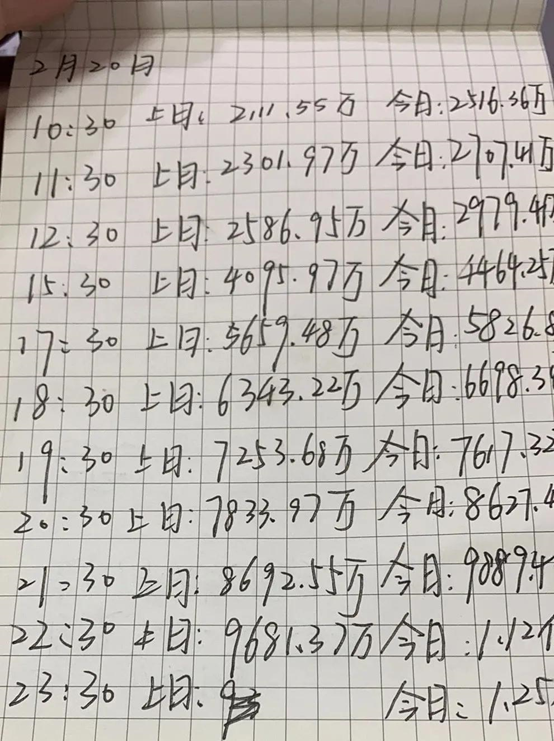 2月20日
10:30 上日: 2111.55万 今日:2516.36万
11:30 上日:2301.97万 今日:2707.41万
12:30 上日:2586.95万 今日:2979.4
15:30 上日:4095.97万 今日:4464.25
17:30 上日:5659.48万 今日:5826.8
18:30 上日:6343.22万 今日:6698.3
19:30 上日:7253.68万 今日:7617.32
20:30 上日:7833.97万 今日:8627.4
21:30 上日:8692.55万 今日:9889.4
22:30 上日:9681.37万 今日:1.12
23:30 上日: 今日:1.25